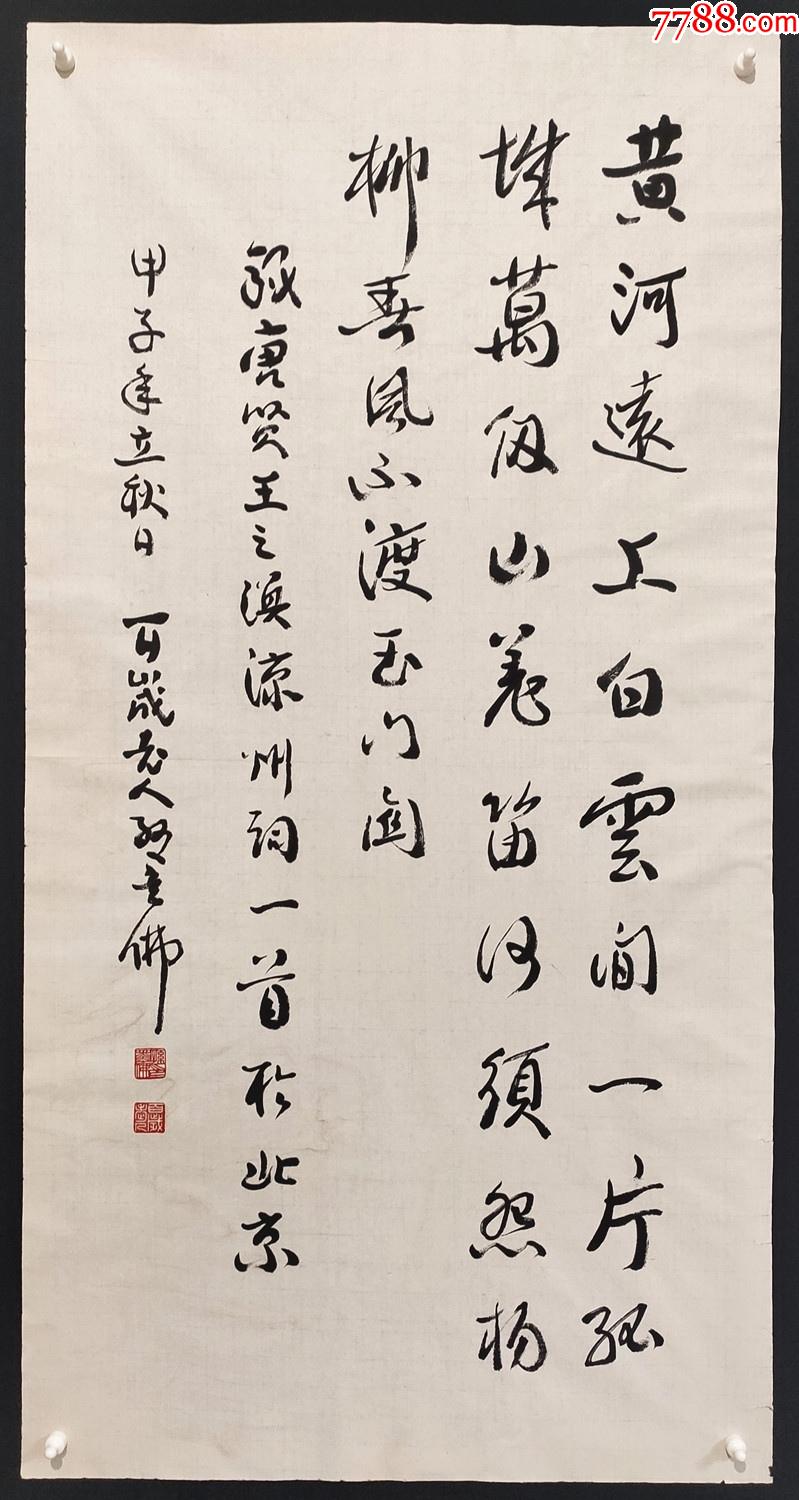 7788.com
黄河遠上白雲间一片孤
城萬仞山羌笛何须怨杨
柳春風不渡玉门関
录唐贤王之涣凉州词一首於北京
甲子年立秋日 百歲老人孙墨佛